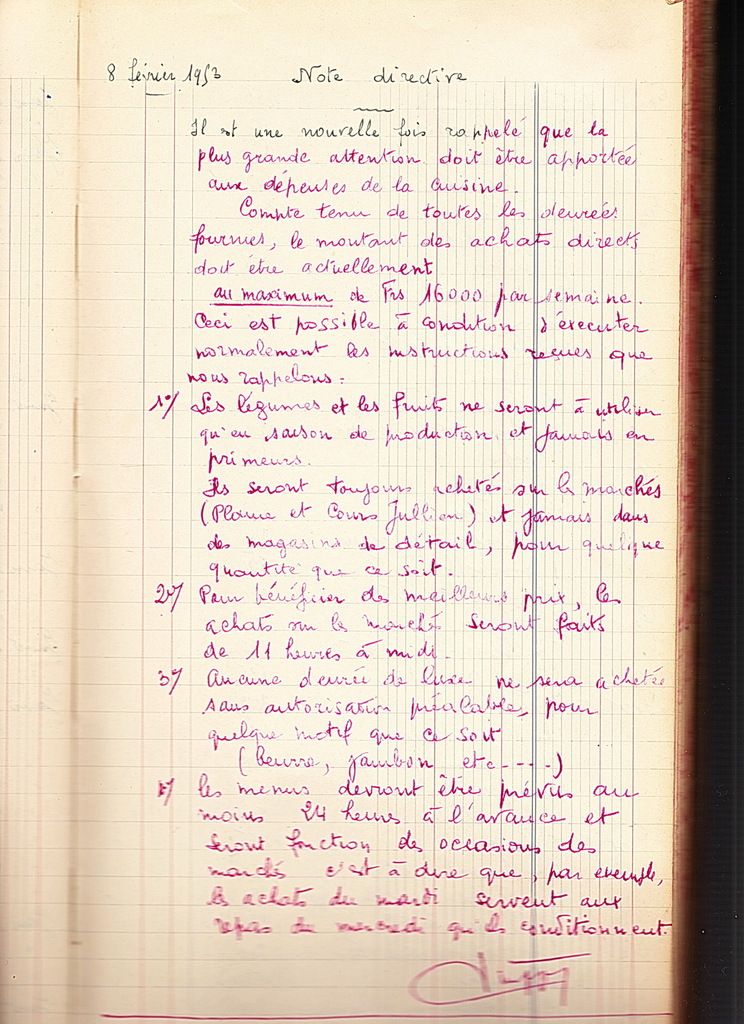 8 février 1953 Note directive
Il est une nouvelle fois rappelé que la
plus grande attention doit être apportée
aux dépenses de la cuisine.
Compte tenu de toutes les denrées
fournies, le montant des achats directs
doit être actuellement
au maximum de Frs 16000 par semaine.
Ceci est possible à condition d'executer
normalement les instructions reçues que
nous rappelons :
1°/ Les légumes et les fruits ne seront à utiliser
qu'en saison de production et jamais en
primeurs.
Ils seront toujours achetés sur les marchés
(Plaine et Cours Jullien) et jamais dans
des magasins de détail, pour quelque
quantité que ce soit.
2°/ Pour bénéficier des meilleurs prix, les
achats sur les marchés seront faits
de 11 heures à midi.
3°/ Aucune denrée de luxe ne sera achetée
sans autorisation préalable, pour
quelque motif que ce soit
(beurre, jambon etc----)
4°/ les menus devront être prévus au
moins 24 heures à l'avance et
seront fonction des occasions des
marchés c'est à dire que, par exemple,
les achats du mardi servent aux
repas du mercredi qu'ils conditionnent.